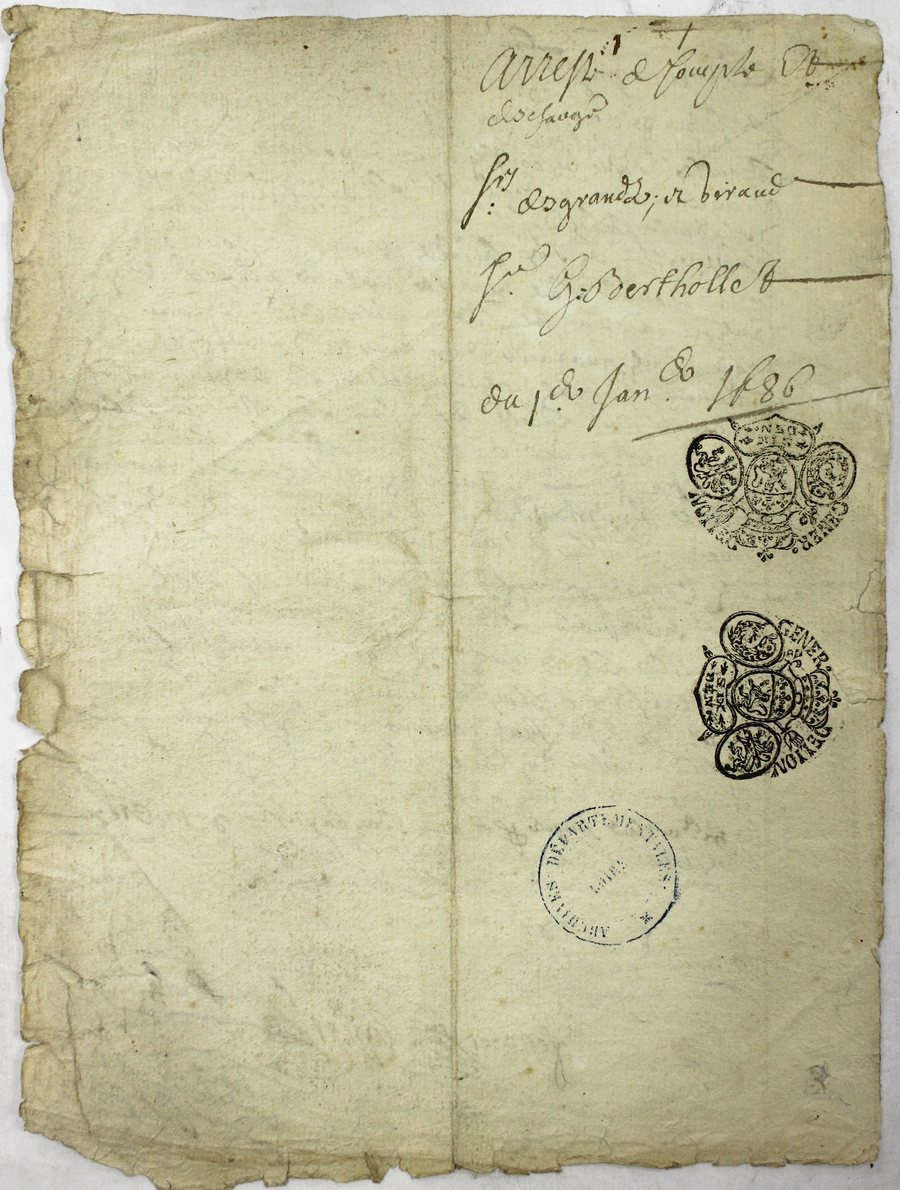 Arresté de Compte Et
descharge
Srs desgrands, et Viraud
Sr G: Berthollet
du 1er Janer 1686
SIX DEN
GENER. DE LYON
GENER. DE LYON
SIX DEN
ARCHIVES DÉPARTEMENTALES
LOIRE